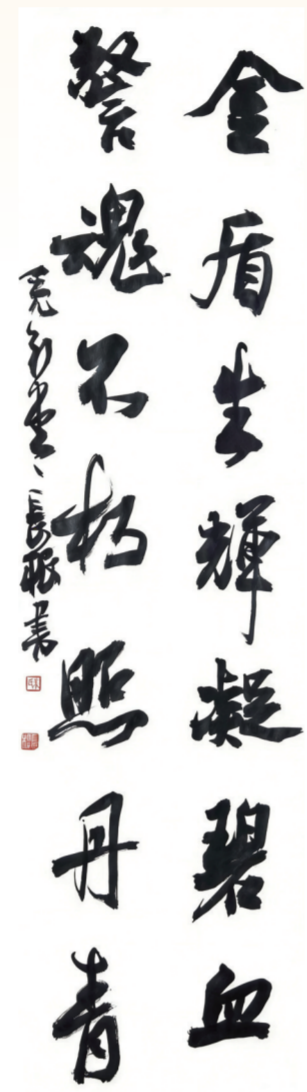 金盾生輝凝碧血
警魂不朽照丹青
長振書